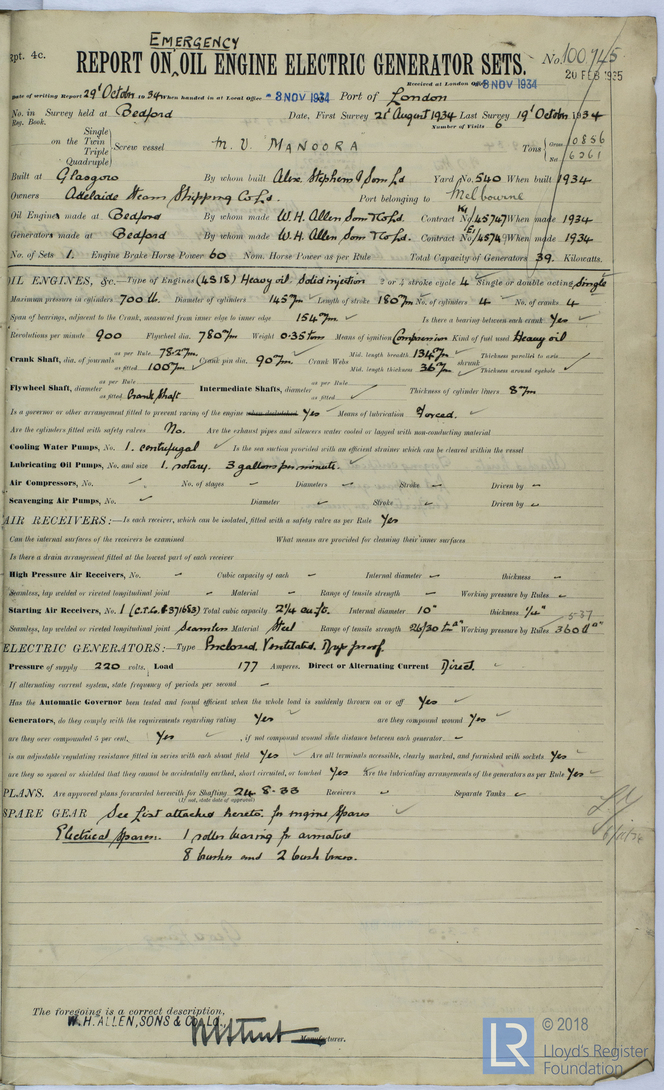 Rpt. 4c.
EMERGENCY
REPORT ON OIL ENGINE ELECTRIC GENERATOR SETS.
No. 100,745
20 FEB 1935
Received at London Office 8 NOV 1934
Date of writing Report 29th Octobr. 1934 When handed in at Local Office 8 NOV 1934 Port of London
No. in Survey held at Bedford Date, First Survey 21st August 1934 Last Survey 19th Octobr. 1934
Reg. Book. Number of Visits 6
Single
on the Twin
Triple
Quadruple
Screw vessel M.V. MANOORA Tons Gross 10856
Net 6261
Built at Glasgow By whom built Alex. Stephen & Son Ld Yard No. 540 When built 1934
Owners Adelaide Steam Shipping Co Ld. Port belonging to Melbourne
Oil Engines made at Bedford By whom made W.H. Allen Sons & Co Ld. Contract No. K1/45747 When made 1934
Generators made at Bedford By whom made W.H. Allen Sons & Co Ld. Contract No. When made 1934
No. of Sets 1. Engine Brake Horse Power 60 Nom. Horse Power as per Rule Total Capacity of Generators 39. Kilowatts.
OIL ENGINES, &c.—Type of Engines (4S18) Heavy oil Solid injection 2 or 4 stroke cycle 4 Single or double acting Single
Maximum pressure in cylinders 700 lb. Diameter of cylinders 145 7m Length of stroke 180 7m No. of cylinders 4 No. of cranks 4
Span of bearings, adjacent to the Crank, measured from inner edge to inner edge 154 7m Is there a bearing between each crank Yes
Revolutions per minute 900 Flywheel dia. 780 7m Weight 0.35 tons Means of ignition Compression Kind of fuel used Heavy oil
Crank Shaft, dia. of journals as per Rule 78.2 7m as fitted 100 7m Crank pin dia. 90 7m Crank Webs Mid. length breadth 134 7m Mid. length thickness 36 7m shrunk Thickness parallel to axis Thickness around eyehole
Flywheel Shaft, diameter as per Rule as fitted Crank Shaft Intermediate Shafts, diameter as per Rule as fitted Thickness of cylinder liners 8 7m
Is a governor or other arrangement fitted to prevent racing of the engine when declutched Yes Means of lubrication Forced.
Are the cylinders fitted with safety valves No. Are the exhaust pipes and silencers water cooled or lagged with non-conducting material
Cooling Water Pumps, No. 1. centrifugal Is the sea suction provided with an efficient strainer which can be cleared within the vessel
Lubricating Oil Pumps, No. and size 1. rotary. 3 gallons per minute.
Air Compressors, No. No. of stages Diameters Stroke Driven by
Scavenging Air Pumps, No. Diameter Stroke Driven by
AIR RECEIVERS:—Is each receiver, which can be isolated, fitted with a safety valve as per Rule Yes
Can the internal surfaces of the receivers be examined What means are provided for cleaning their inner surfaces
Is there a drain arrangement fitted at the lowest part of each receiver
High Pressure Air Receivers, No. Cubic capacity of each Internal diameter thickness
Seamless, lap welded or riveted longitudinal joint Material Range of tensile strength Working pressure by Rules
Starting Air Receivers, No. 1 (C.T.Co. B371683) Total cubic capacity 2 1/4 cu. ft. Internal diameter 10" thickness 1/4"
537
Seamless, lap welded or riveted longitudinal joint Seamless Material Steel Range of tensile strength 26/30 t □" Working pressure by Rules 360 #□"
ELECTRIC GENERATORS:—Type Enclosed Ventilated. Drip proof.
Pressure of supply 220 volts. Load 177 Amperes. Direct or Alternating Current Direct.
If alternating current system, state frequency of periods per second
Has the Automatic Governor been tested and found efficient when the whole load is suddenly thrown on or off Yes
Generators, do they comply with the requirements regarding rating Yes are they compound wound Yes
are they over compounded 5 per cent. Yes , if not compound wound state distance between each generator
is an adjustable regulating resistance fitted in series with each shunt field Yes Are all terminals accessible, clearly marked, and furnished with sockets Yes
are they so spaced or shielded that they cannot be accidentally earthed, short circuited, or touched Yes Are the lubricating arrangements of the generators as per Rule Yes
PLANS. Are approved plans forwarded herewith for Shafting 24.8.33 Receivers Separate Tanks
(If not, state date of approval)
SPARE GEAR See List attached hereto. for engine spares
Electrical Spares. 1 roller bearing for armature
8 brushes and 2 brush boxes.
The foregoing is a correct description,
W.H. ALLEN, SONS & Co. Ld.,
Manufacturer.
LR
© 2018
Lloyd's Register
Foundation